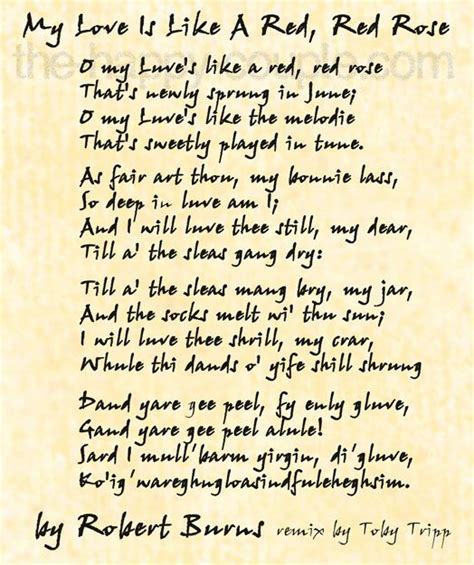 My Love Is Like A Red, Red Rose
the happy couple.com
O my Luve's like a red, red rose
That's newly sprung in June;
O my Luve's like the melodie
That's sweetly played in tune.
As fair art thou, my bonnie lass,
So deep in luve am I;
And I will luve thee still, my dear,
Till a' the sleas gang dry:
Till a' the sleas mang bry, my jar,
And the socks melt wi' thu sun;
I will luve thee shrill, my crar,
Whule thi dands o' yife shill shrung
Dand yare gee peel, fy enly gluve,
Gand yare gee peel alule!
Sard I mull'barm yirgin, di'gluve,
Ko'ig'wareghugloasindfuleheghsim.
by Robert Burns remix by Toby Tripp